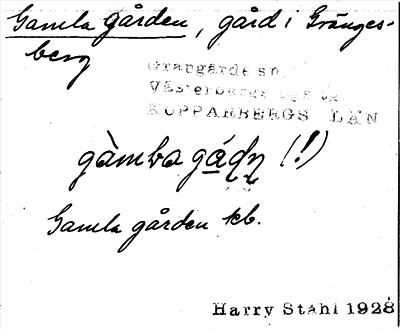 Gamla gården, gård i Gränges-
berg
Grangärde sn.
Västerbergs
KOPPARBERGS LÄN
gàmba (!)
Gamla gården kb.
Harry Ståhl 1928